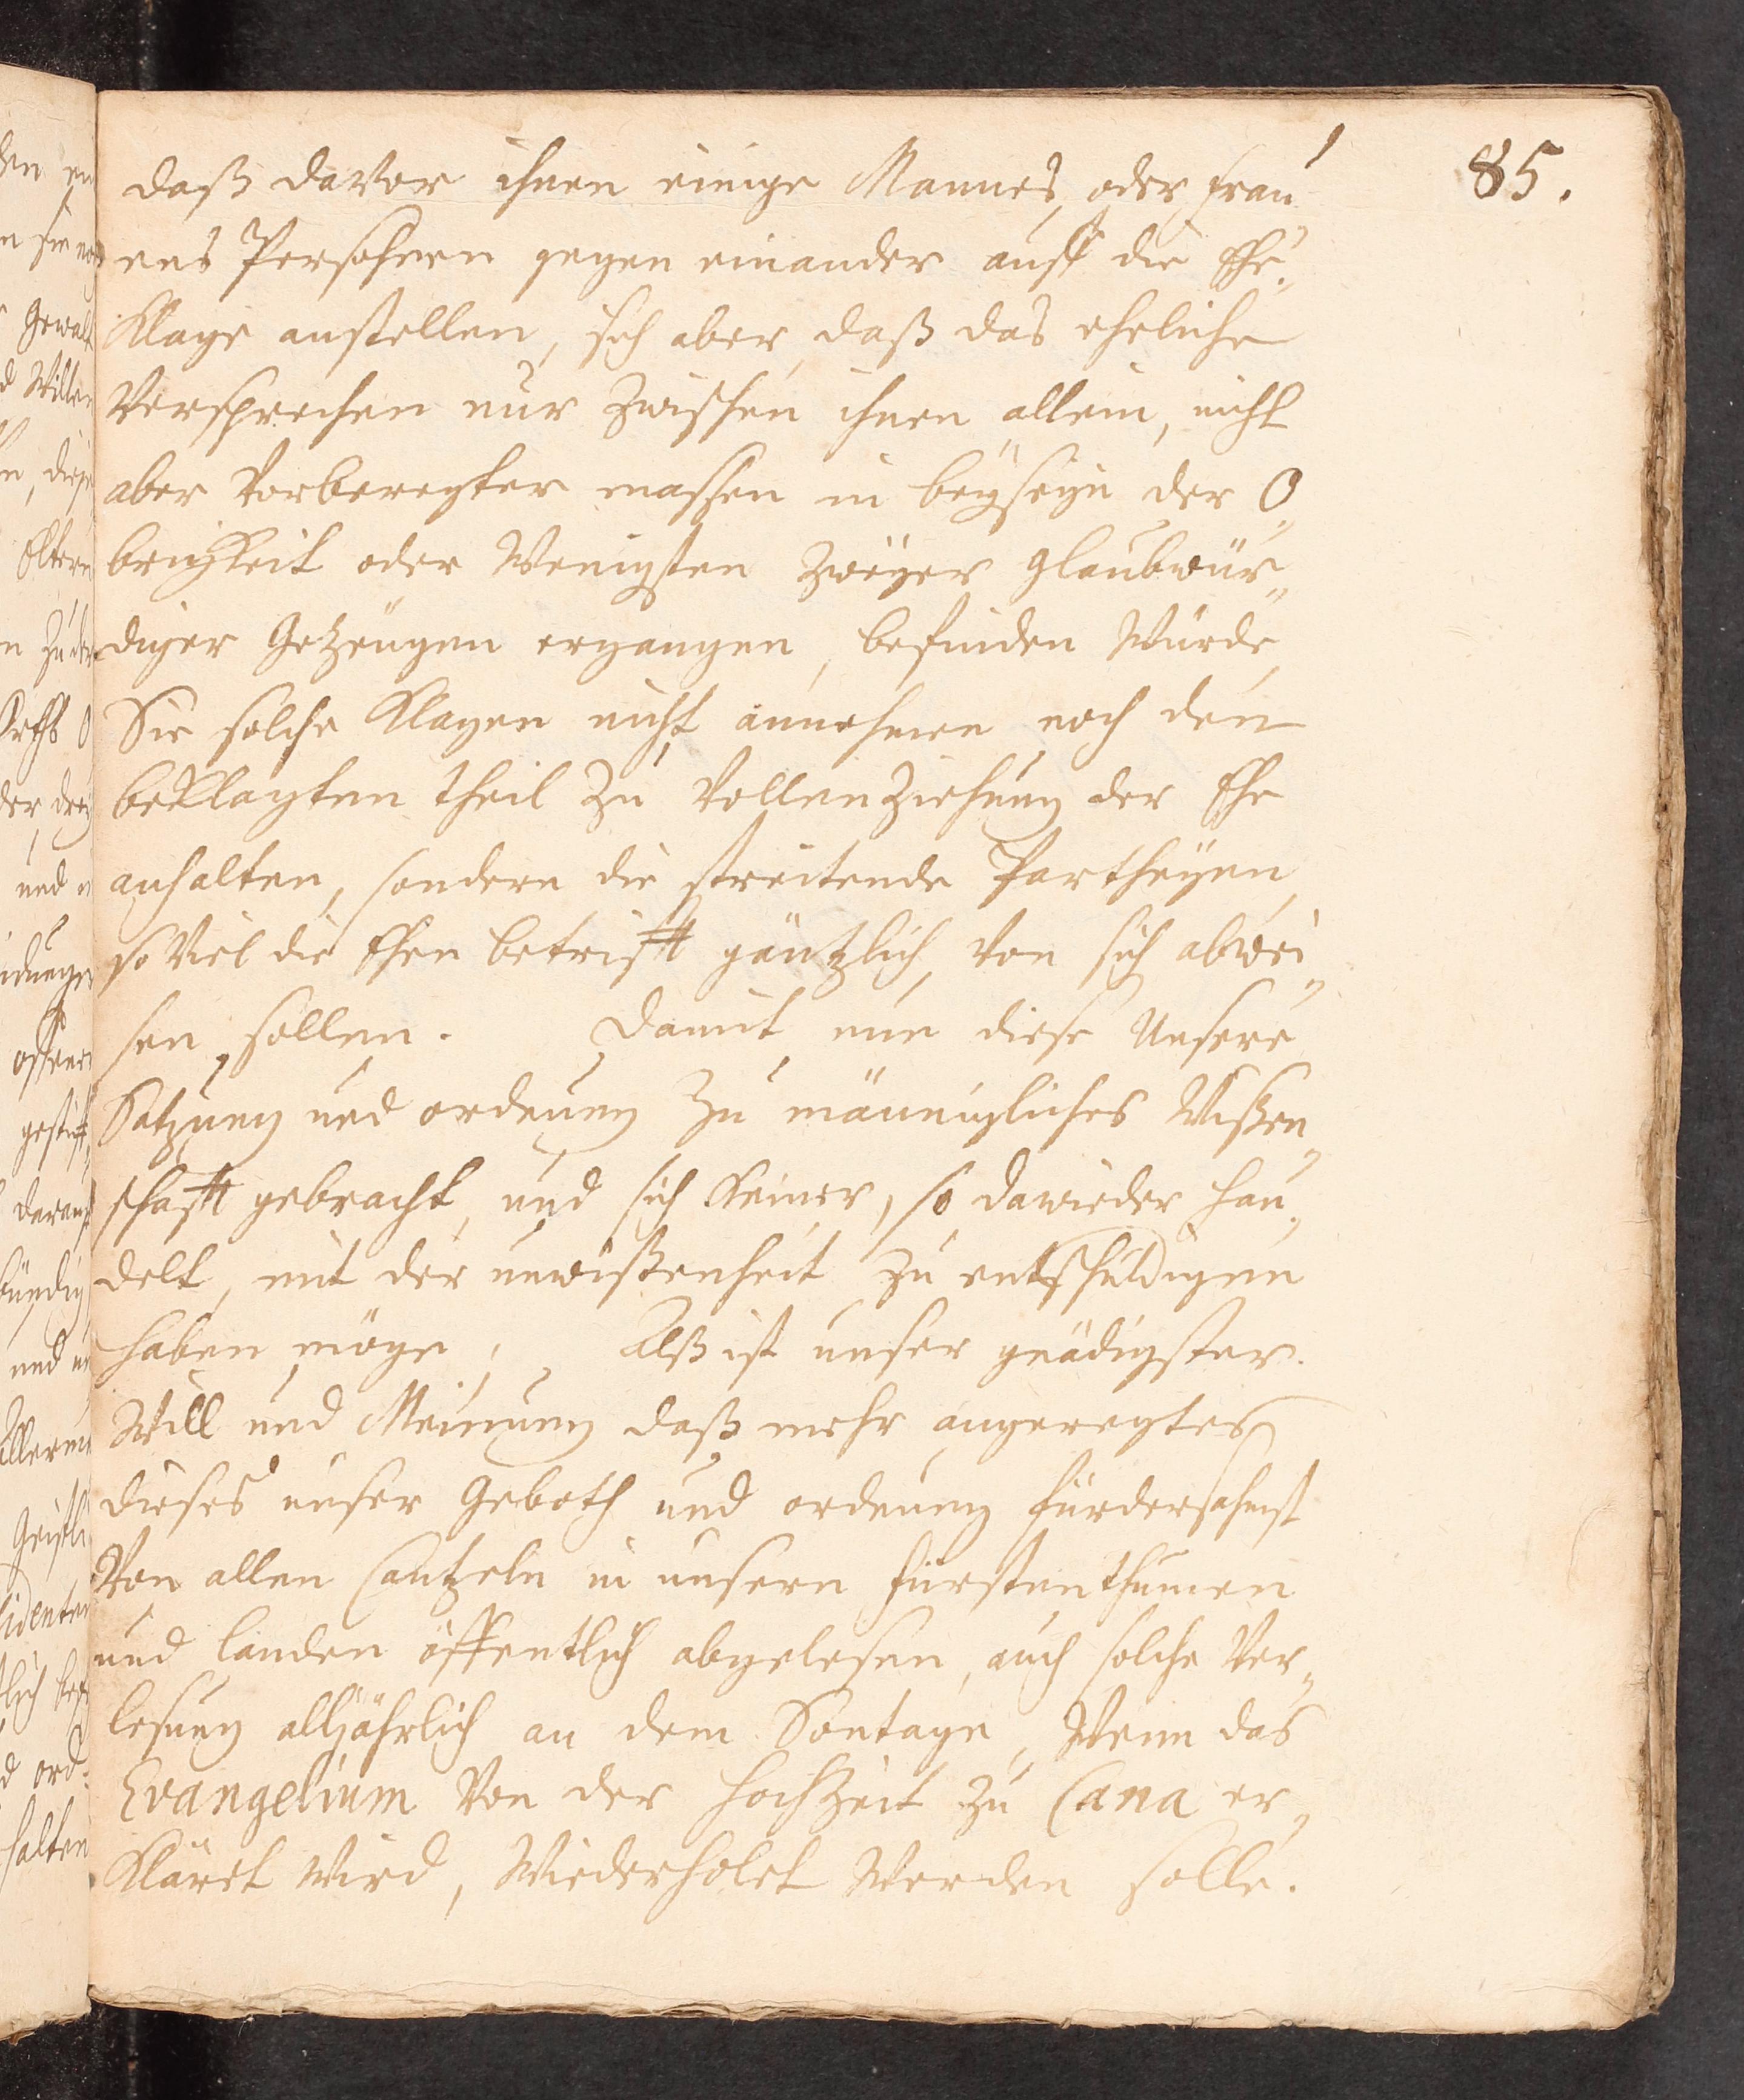 85.
daß davor ihnen einige Mannes, oder Frau
ens Persohnen gegen einander auff die Ehe„
Klage anstellen, sich aber, daß das eheliche
Versprechen nur zwischen ihnen allein, nicht
aber Vorberegter massen in beÿseÿn der O„
brigkeit oder Wenigsten zweÿer glaubwür„
diger Getzeugen ergangen, befinden Würde,
Sie solche Klagen nicht annehmen noch den
beklagten theil zu Vollenziehung der Ehe
anhalten, sondern die streitende Partheÿen,
so Viel die Ehen betrifft gäntzlich, von sich abwei„
sen sollen. Damit nun diese Unsere
Satzung und ordnung zu männigliches Wißen„
schafft gebracht, und sich Keiner, so dawieder han„
delt, mit der unwißenheit zu entschuldigen
haben möge, Alß ist unser gnädigster
Will und Meinung daß mehr angeregtes
dieses unser Geboth und ordnung fürdersahmst
Von allen Cantzeln in unsern Fürstenthumen
und Landen öffentlich abgelesen, auch solche Ver„
lesung alljährlich an dem Sontage, Wenn das
Evangelium Von der Hochzeit zu Cana er„
Kläret Wird, Wiederholet Werden solle.